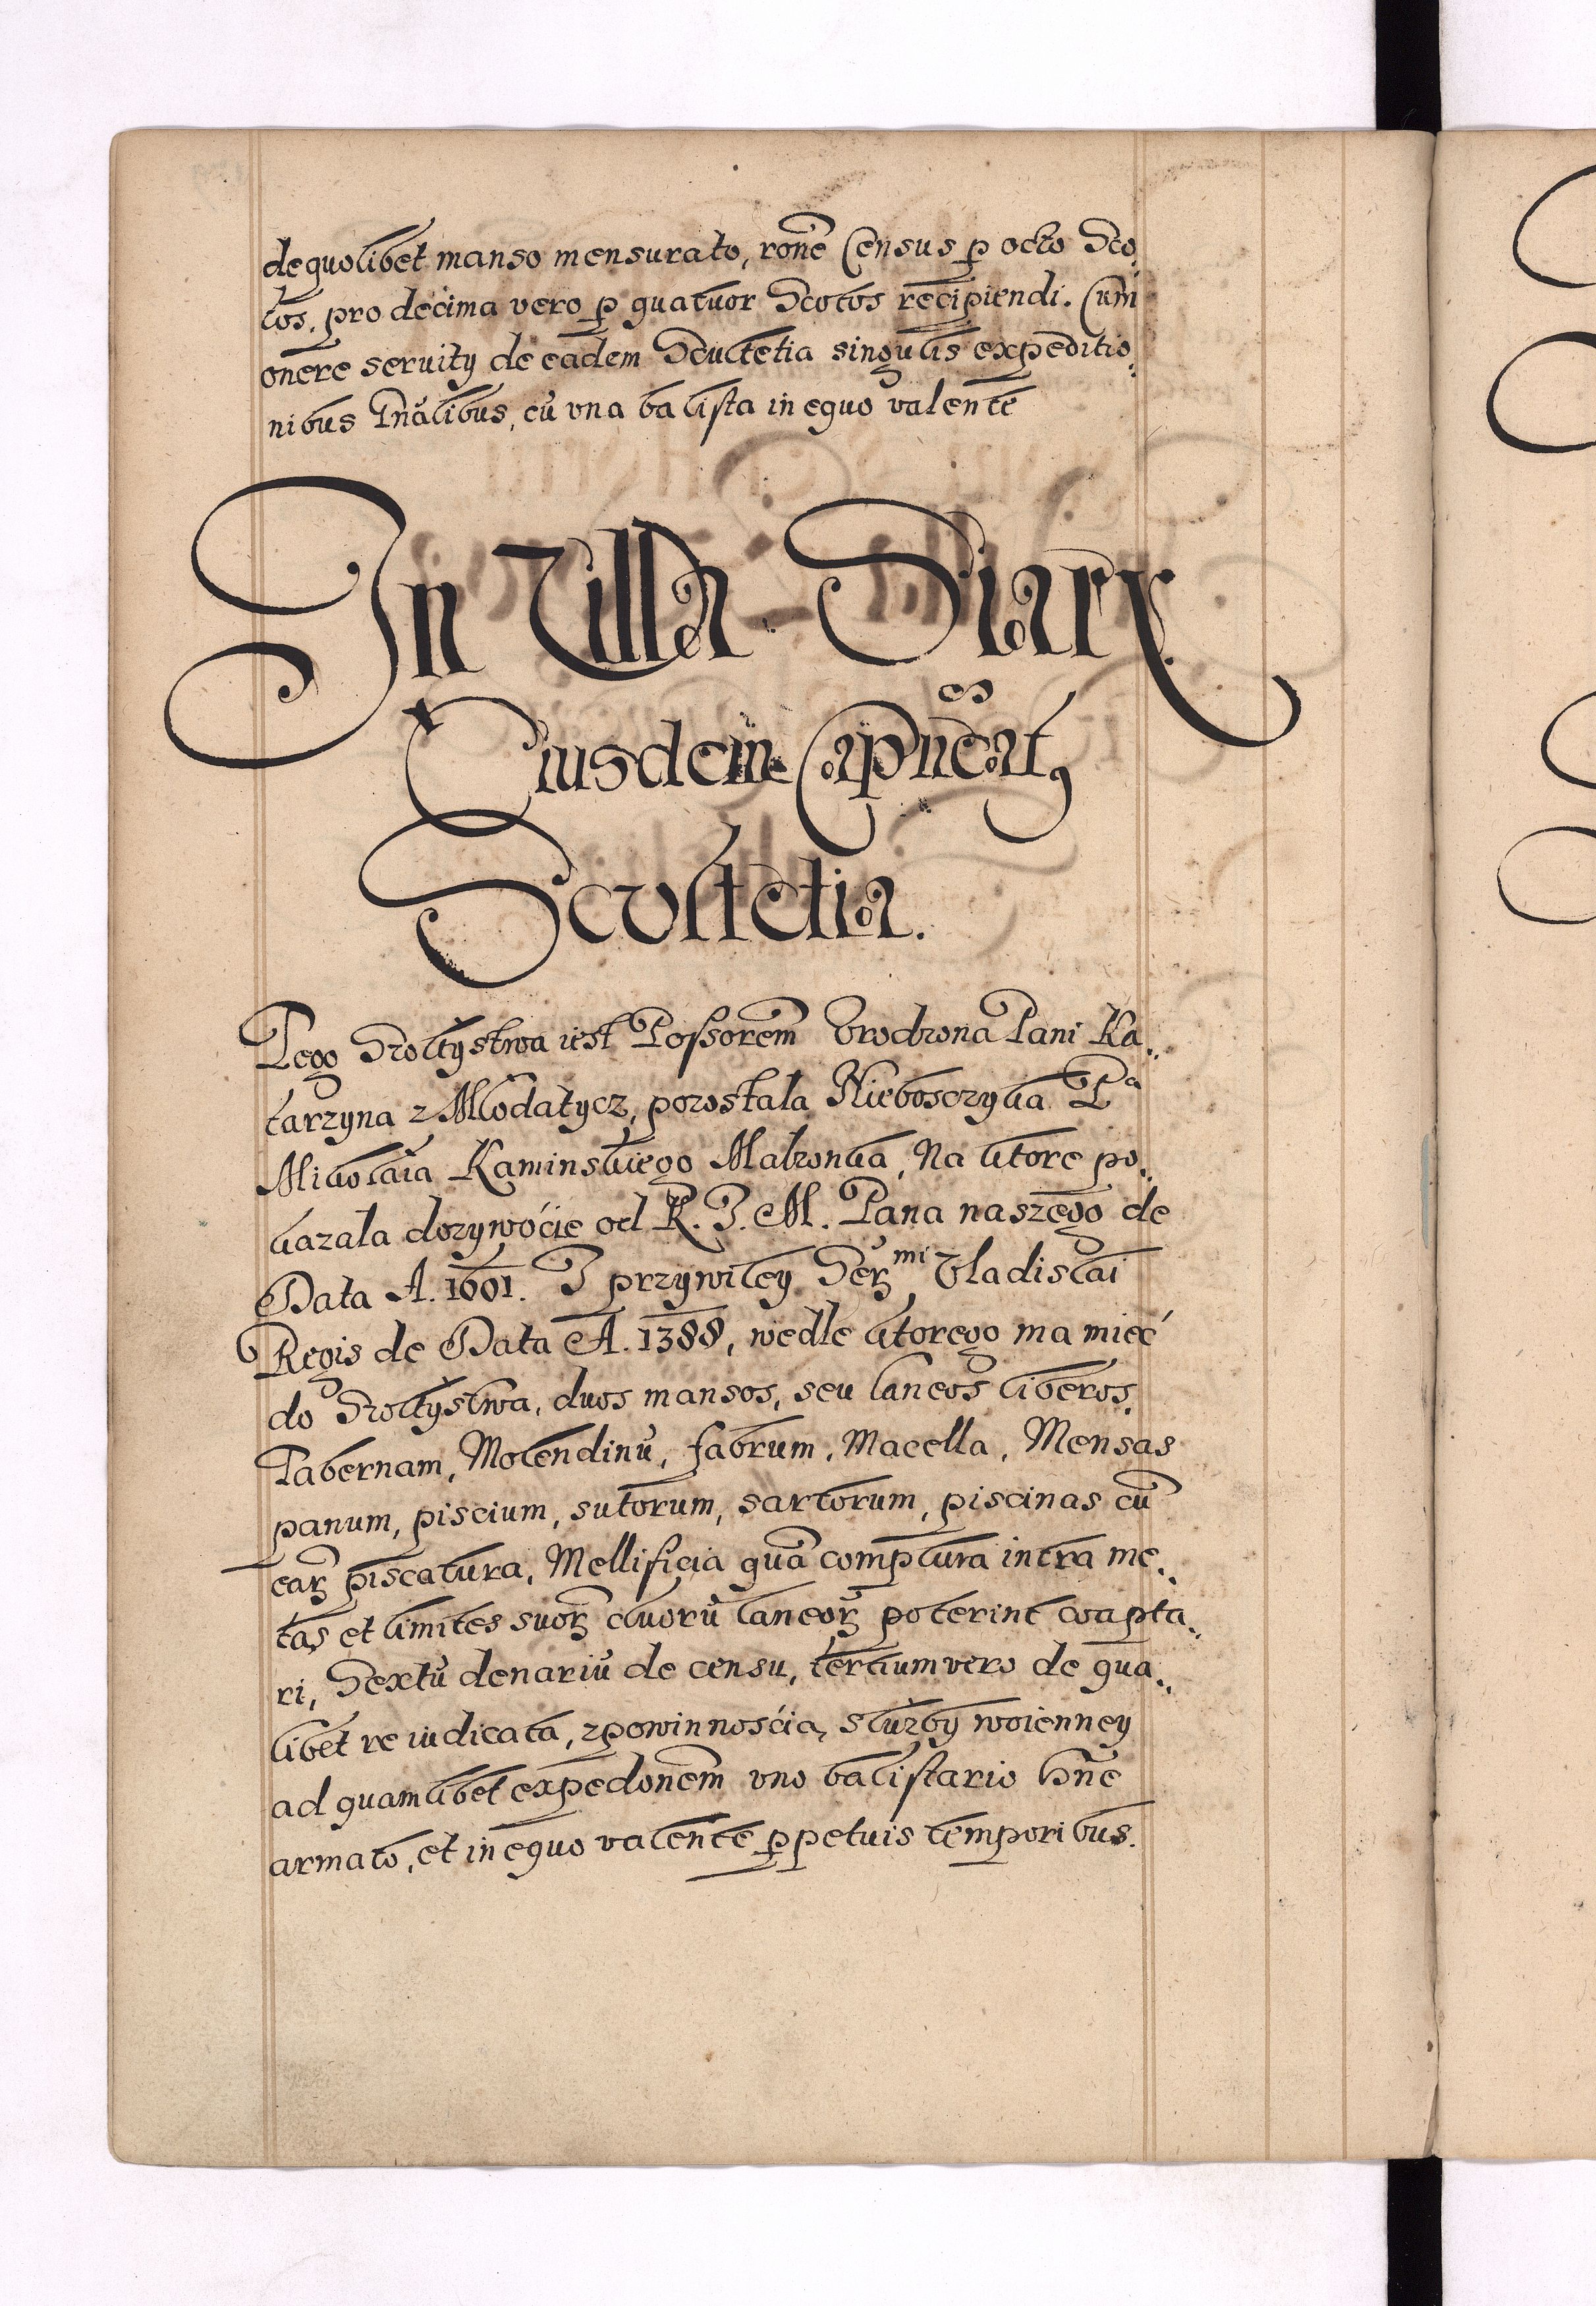 de quolibet manso mensurato, rone Census p octo Sco.
tos, pro decima vero p quatuor Scotos recipiendi. Cum
onere seruity de eadem Scultetia singulis expeditio.
nibus Gnalibus, cu vna balista in equo valente
In Villa Siary
Eiusdem Capneat9
Scultetia.
Tego Szoltystwa iest Possorem Vrodzona Pani Ka..
tarzyna z Mlodatycz, pozostala Nieboszczyka Pa
Mikolaia Kaminskiego Malzonka, Na ktore po.
kazala dozywocie od K. J. M. Pana naszego de
Data A. 1601. J przywiley Sermi Vladislai
Regis de Data A. 1388, wedle ktorego ma mieć
do Szoltystwa, duos mansos, seu laneos liberos.
Tabernam, Molendinu, fabrum, Macella, Mensas
panum, piscium, sutorum, sartorum, piscinas cu
ear piscatura, Mellificia qua complura intra me..
tas et limites suor duoru laneor poterint coapta..
ri, Sextu denariu de censu, tertium vero de qua..
libet re iudicata, z powinnościa służby woienney
ad quamlibet expedonem vno balistario bne
armato, et in equo valente ppetuis temporibus.